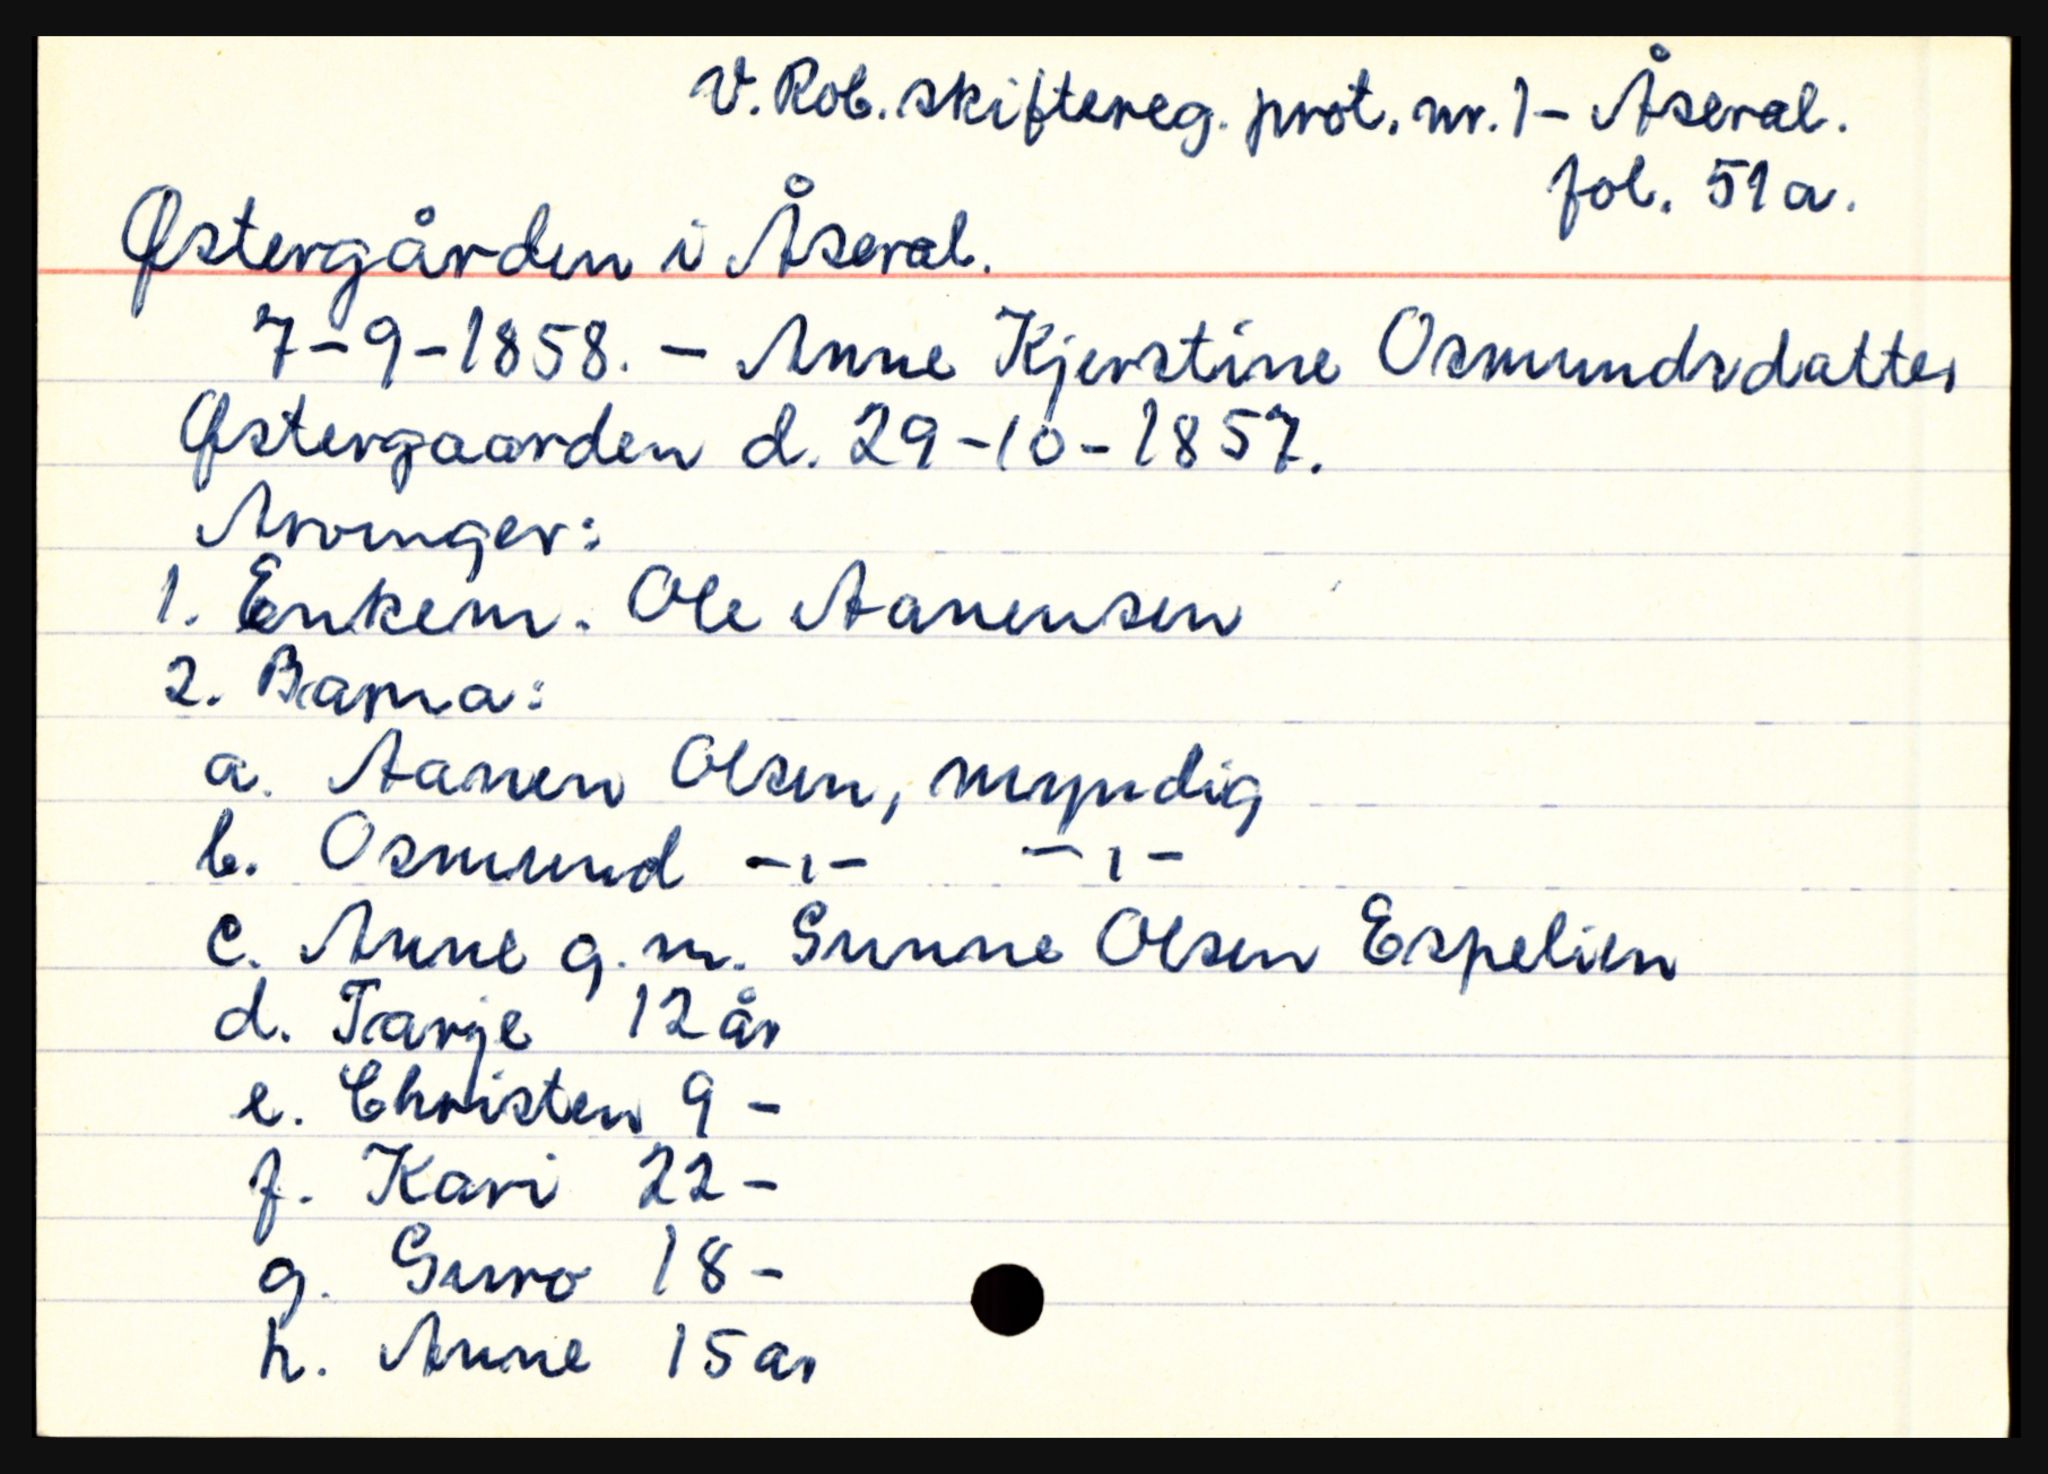 V. Rob. skiftereg. prot. nr. 1 - Åseral.
fol. 51a.
Østergården i Åseral.
7-9-1858. - Anne Kjerstine Osmundsdatter
Østergaarden d. 29-10-1857.
Arvinger:
1. Enkem. Ole Aanensen
2. Barna:
a. Aanen Olsen, myndig
b. Osmund -ı- -ı-
c. Anne g. m. Gunne Olsen Espelien
d. Tarje 12 år
e. Christen 9 -
f. Kari 22 -
g. Guro 18 -
h. Anne 15 år